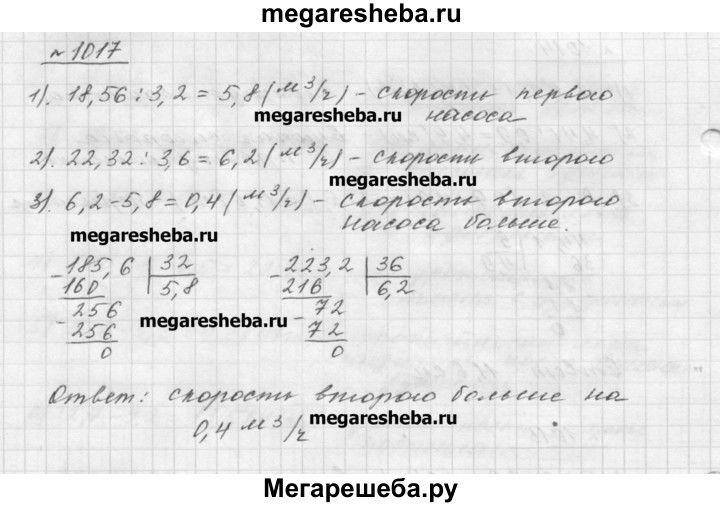 megaresheba.ru
№ 1017
1). 18,56 : 3,2 = 5,8 (м³/ч) - скорость первого
megaresheba.ru насоса
2). 22,32 : 3,6 = 6,2 (м³/ч) - скорость второго
megaresheba.ru
3). 6,2 - 5,8 = 0,4 (м³/ч) - скорость второго
насоса больше.
megaresheba.ru
- 185,6 | 32 - 223,2 | 36
160 5,8 216 6,2
- 256 - 72
256 megaresheba.ru 72
0 0
Ответ: скорость второго больше на
megaresheba.ru
0,4 м³/ч
Мегарешеба.ру